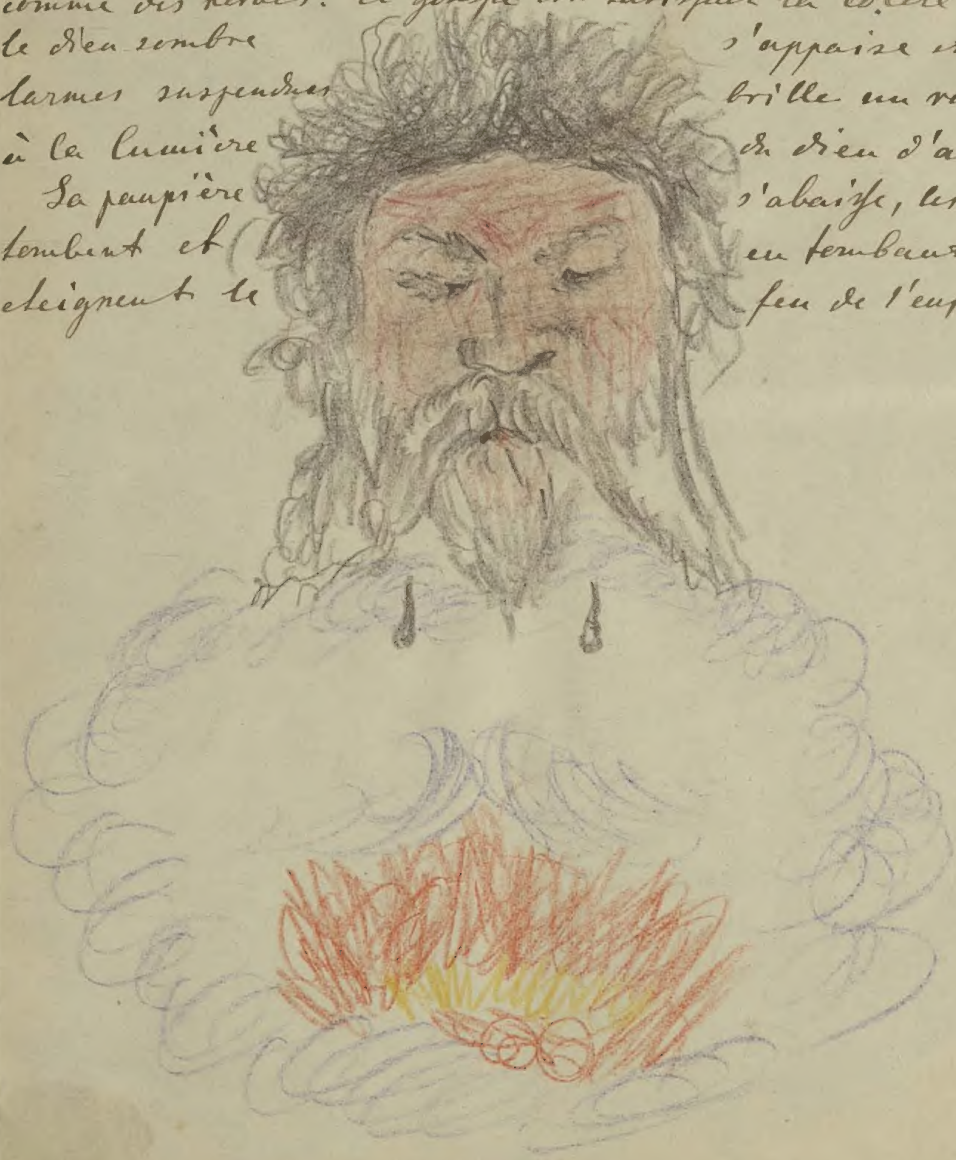 comme des héros. le satisfait la colère
le dieu sombre s'appaise et
larmes suspendues brille un
à la lumière du dieu d'a
La paupière s'abaisse, les
tombent et en tombant
eteignent le feu de l'enf